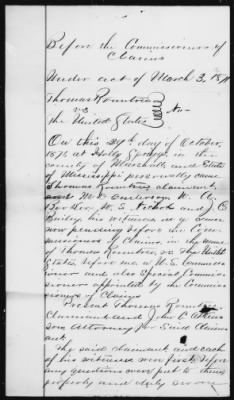 Before the Commissioners of
Claims
Under act of March 3, 1871
Thomas Rountree
vs No
the United States
On this 27th day of October,
1876 at Holly Springs in the
county of Marshall and State
of Mississippi personally came
Thomas Rountree claimant
and M D
J C
Bailey his witnesses in a cause
now pending before the Com
missioners of Claims in the name
of Thomas Rountree vs The United
States, before me a U.S. Commissi
oner and also Special Commis
sioner appointed by the Commiss
ioners of Claims
Present Thomas Rountree
Claimant and John C Atkin
son Attorney for Said Claim
ant
The said claimant and each
of his witnesses were first before
any questions were put to them
properly and duly sworn